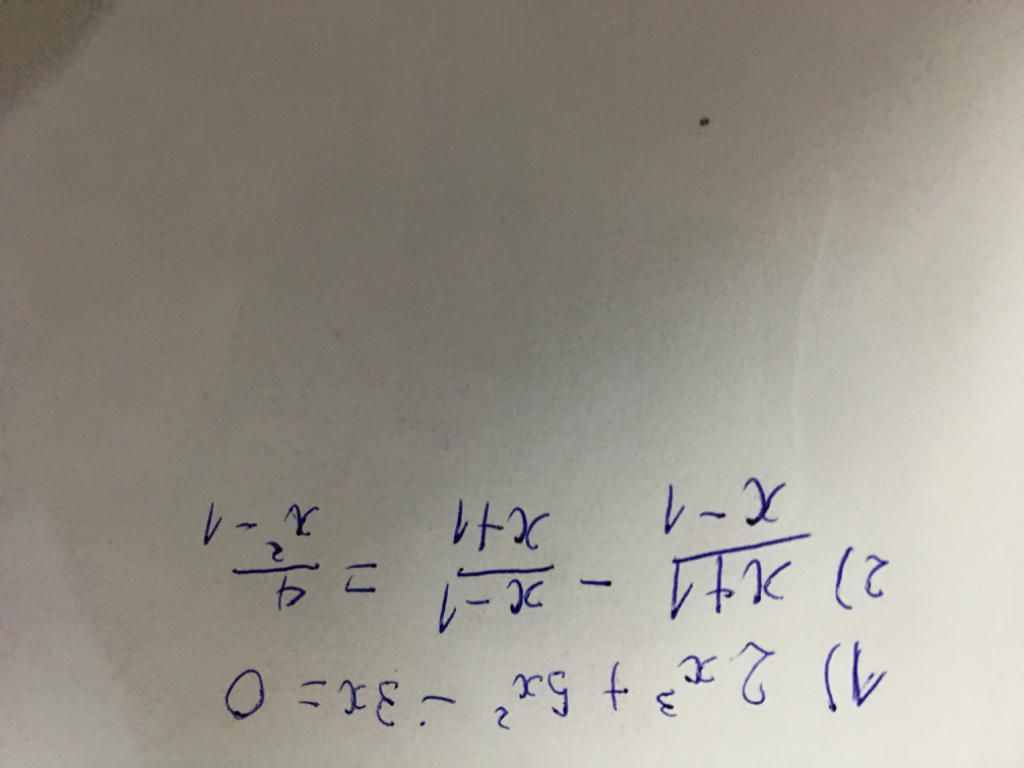 1) 2x³ + 5x² - 3x = 0
2) (x+1)/(x-1) - (x-1)/(x+1) = 4/(x²-1)